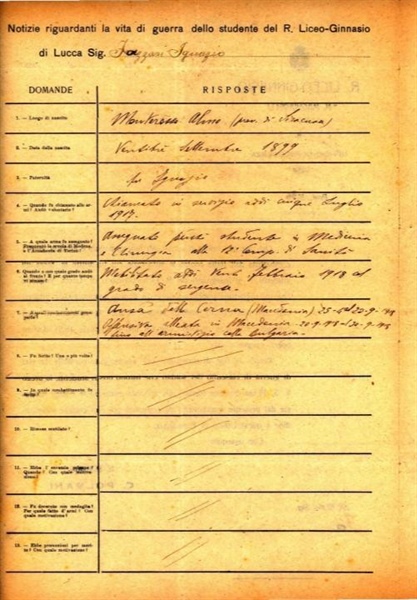 Notizie riguardanti la vita di guerra dello studente del R. Liceo-Ginnasio
di Lucca Sig. Ignazio
DOMANDE
RISPOSTE
1. — Luogo di nascita
Monterosso Almo (prov. di Siracusa)
2. — Data della nascita
Ventitre Settembre 1899
3. — Paternità
fu Ignazio
4. — Quando fu chiamato alle armi? Andò volontario?
Chiamato in servizio addì cinque Luglio
1917.
5. — A quale arma fu assegnato?
Assegnato perchè studente in Medicina
e Chirurgia alla Comp. di Sanità
6. — Quando e con quale grado andò
al fronte? E per quanto tempo
vi rimase?
Mobilitato addì Venti Febbraio 1918 col
grado di sergente.
7. — A quali combattimenti
Ansa della Cerna (Macedonia)
Offensiva alleata in Macedonia
fino all'armistizio colla Bulgaria.
8. — Fu ferito? Una o più volte?
9. — In quale combattimento fu
ferito?
10. — Rimase mutilato?
11. — Ebbe
Quando? Con quale motivazione?
12. — Fu decorato con medaglia?
Per quale fatto d'armi? Con
quale motivazione?
13. — Ebbe promozioni per merito?
Con quale motivazione?